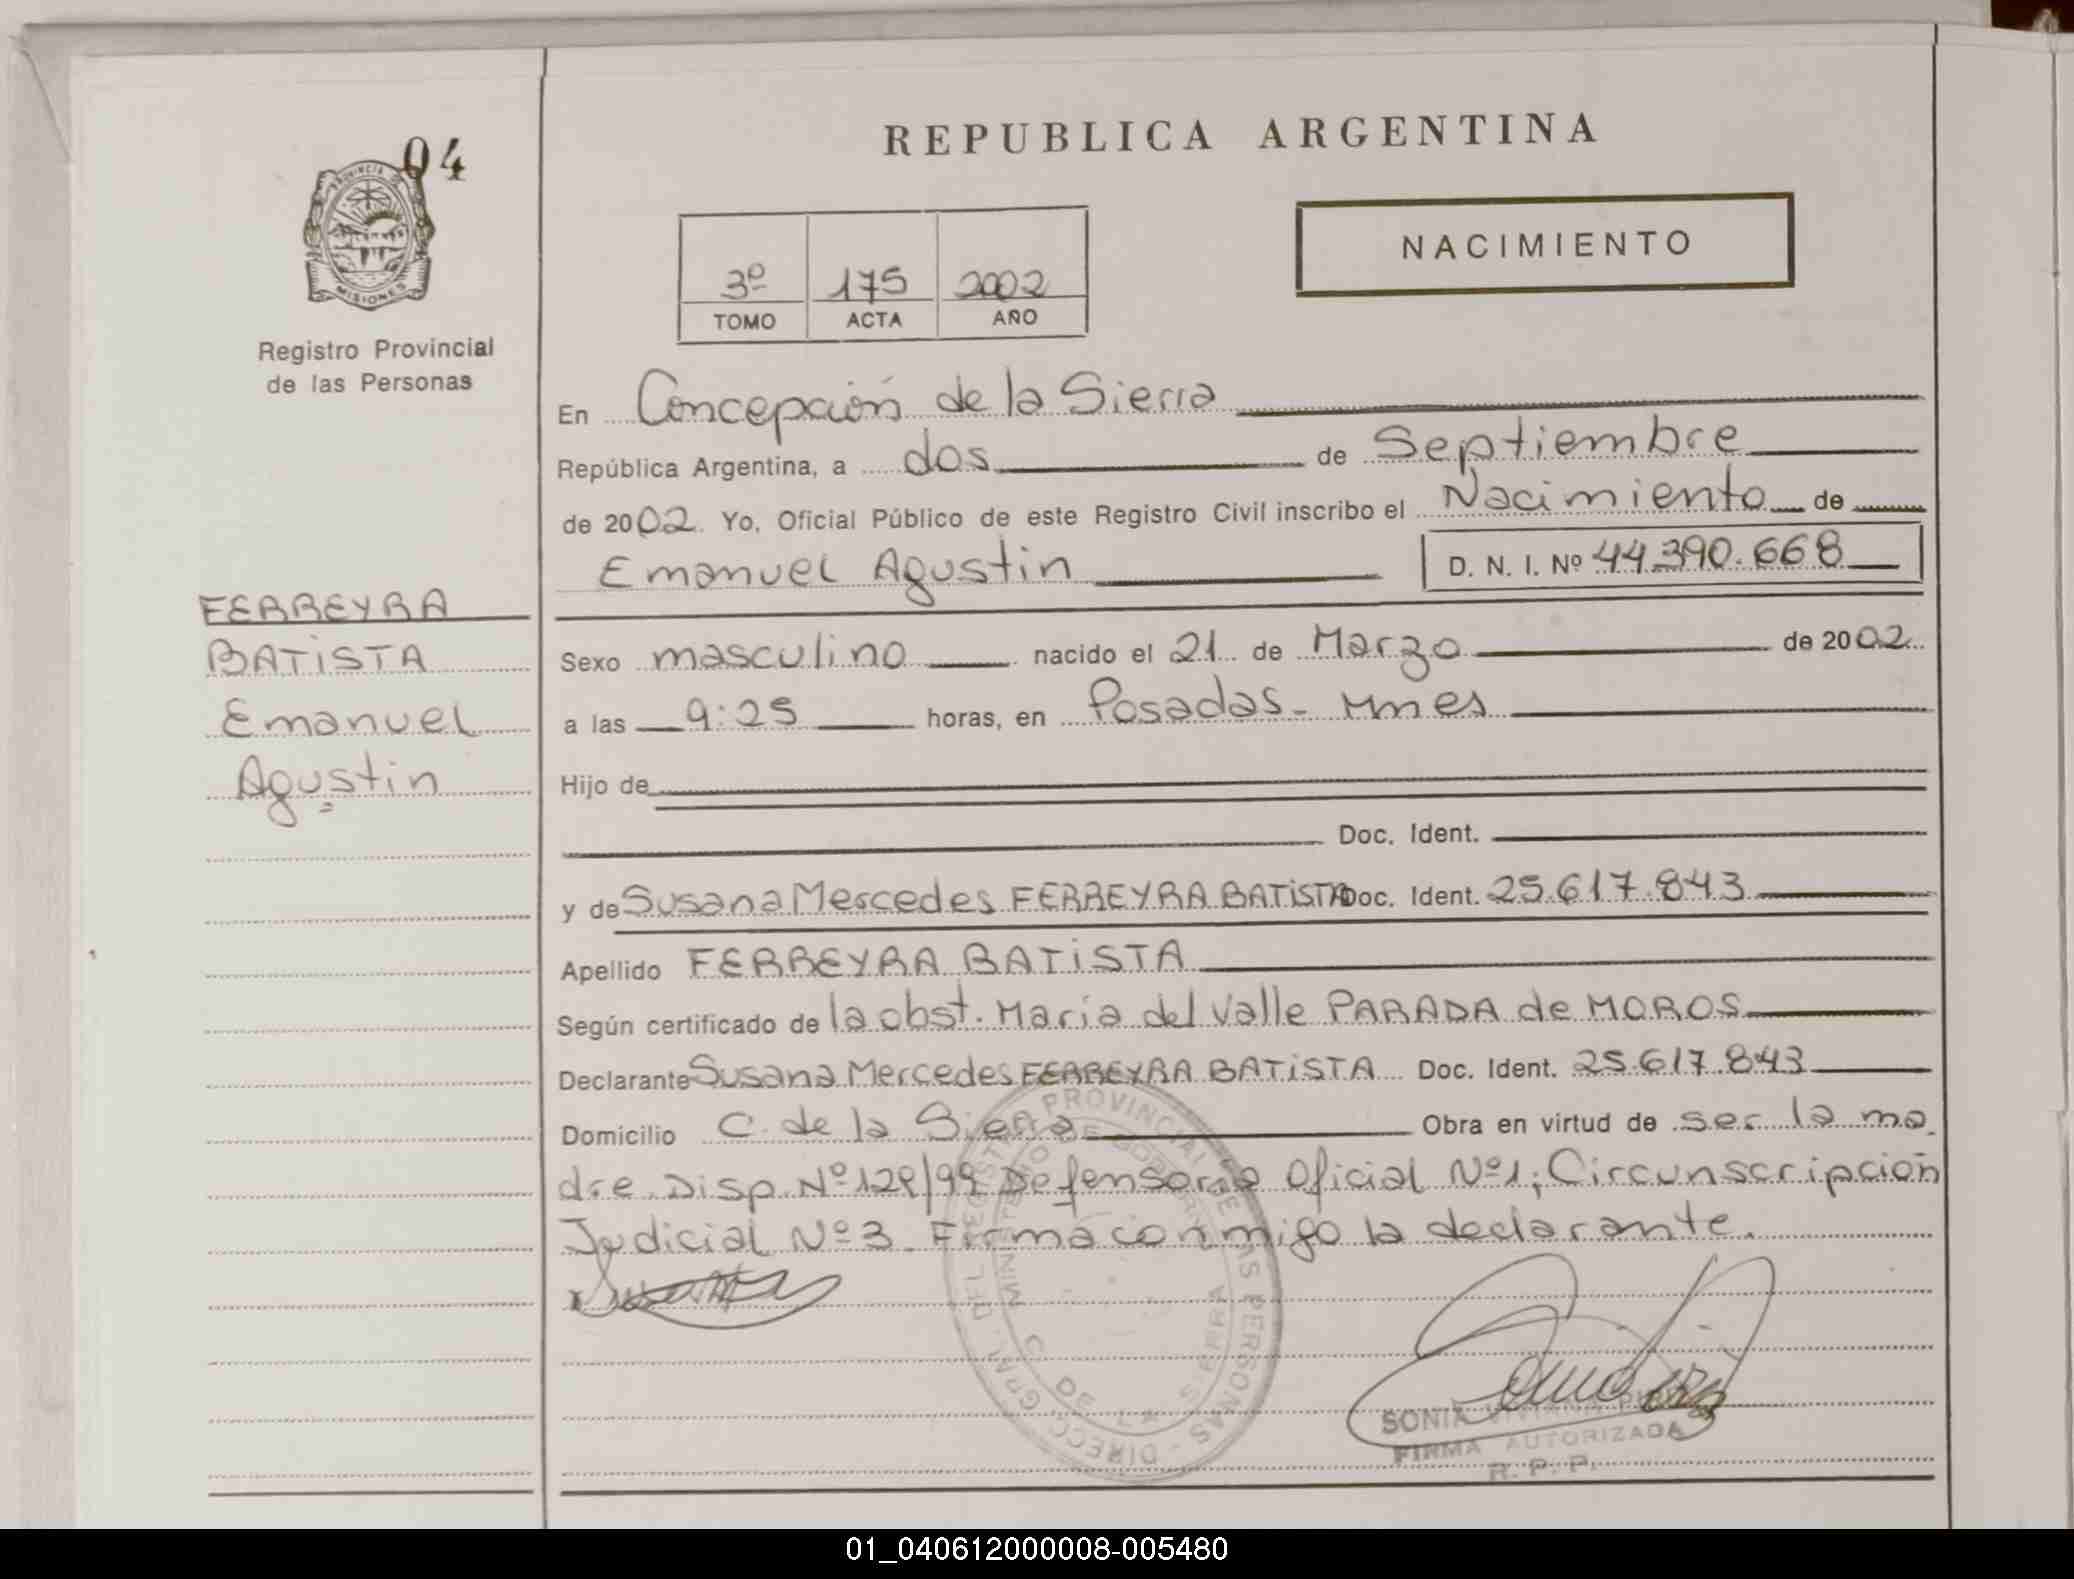 04
PROVINCIA DE
MISIONES
Registro Provincial
de las Personas
FERREYRA
BATISTA
Emanuel
Agustin
REPUBLICA ARGENTINA
NACIMIENTO
3º 175 2002
TOMO ACTA AÑO
En Concepción de la Sierra
República Argentina, a dos de Septiembre
de 2002. Yo, Oficial Público de este Registro Civil inscribo el Nacimiento de
Emanuel Agustin D. N. I. Nº 44.390.668
Sexo masculino nacido el 21 de Marzo de 2002
a las 9:25 horas, en Posadas - Mnes
Hijo de
Doc. Ident.
y de Susana Mercedes FERREYRA BATISTA Doc. Ident. 25.617.843
Apellido FERREYRA BATISTA
Según certificado de la obst. María del Valle PARADA de MOROS
Declarante Susana Mercedes FERREYRA BATISTA Doc. Ident. 25.617.843
Domicilio C. de la Sierra Obra en virtud de ser la ma
dre. Disp. Nº 129/99 Defensoría Oficial Nº1; Circunscripción
Judicial Nº 3. Firma conmigo la declarante.
DIRECC. GRAL. DEL REGISTRO PROVINCIAL DE LAS PERSONAS
MINISTERIO DE GOBIERNO
C. DE LA SIERRA
SONIA VIVIANA
FIRMA AUTORIZADA
R. P. P.
01_040612000008-005480